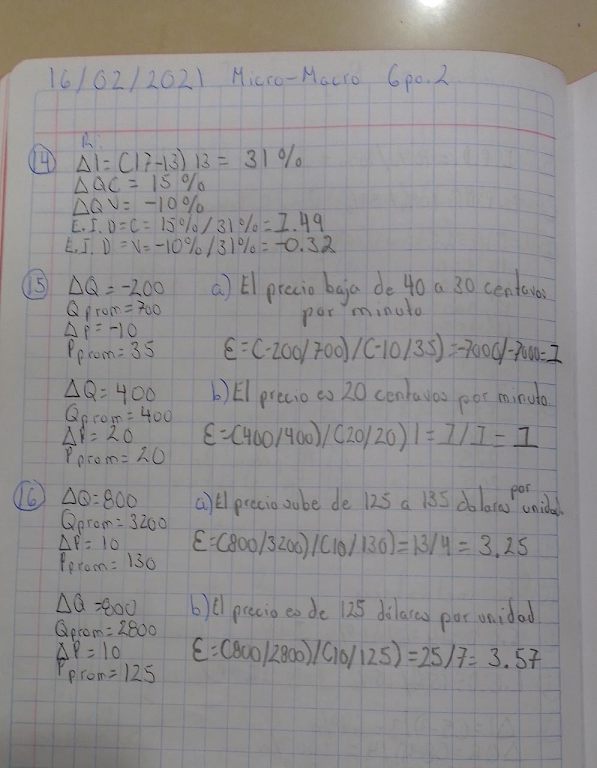 16/02/2021 Micro-Macro Gpo.2
R:
14 ΔI=(17-13)13= 31%
ΔQC = 15%
ΔQV= -10%
E.I.D=C= 15%/31%=1.49
E.I.D=V=-10%/31%=-0.32
15 ΔQ=-200 a) El precio baja de 40 a 30 centavos
Qprom=700 por minuto
ΔP=-10
Pprom=35 Ɛ=(-200/700)/(-10/35)=-7000/-7000=1
ΔQ=400 b) El precio es 20 centavos por minuto
Qprom=400
ΔP=20 Ɛ=(400/400)/(20/20)1=1/1=1
Pprom=20
16 ΔQ=800 a) El precio sube de 125 a 135 dolares por unidad
Qprom=3200
ΔP=10 Ɛ=(800/3200)/(10/130)=13/4=3.25
Pprom=130
ΔQ=800 b) El precio es de 125 dólares por unidad
Qprom=2800
ΔP=10 Ɛ=(800/2800)/(10/125)=25/7=3.57
Pprom=125